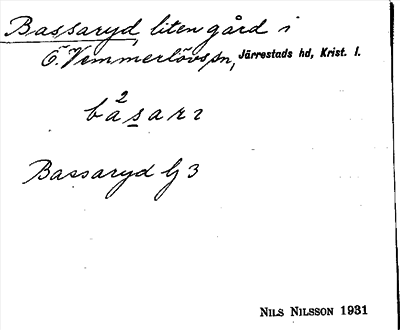 Bassaryd, liten gård i
Ö. Vemmerlövs sn, Järrestads hd, Krist. l.
bа²sarı
Bassaryd Lj 3
NILS NILSSON 1931